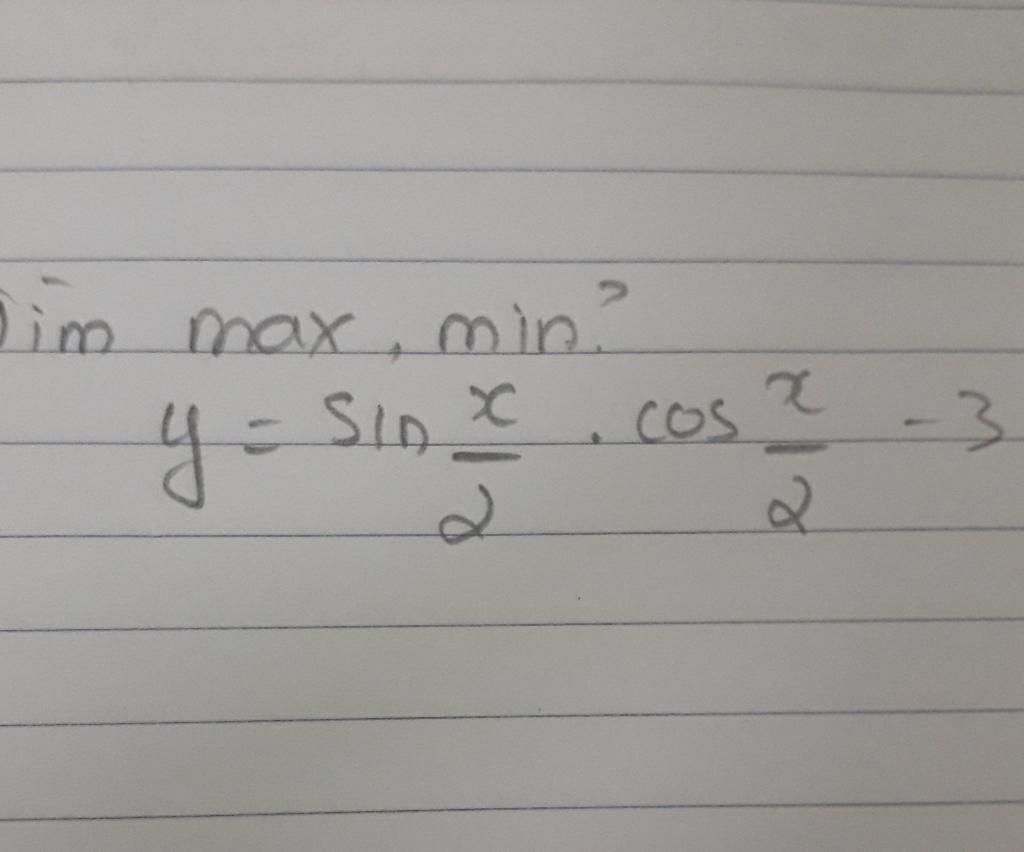 Tìm max, min?
y = sin x/2 . cos x/2 - 3